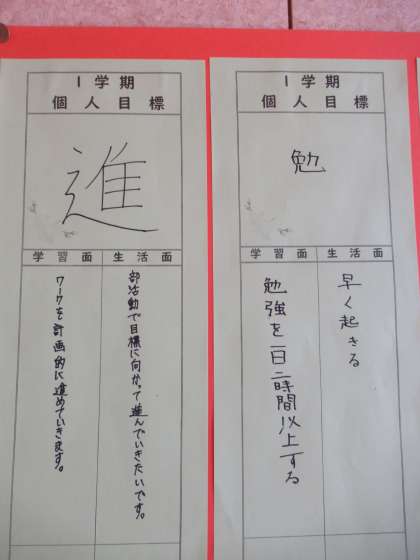 1学期
個人目標
進
学習面
生活面
部活動で目標に向かって進んでいきたいです。
ワークを計画的に進めていきます。
1学期
個人目標
勉
学習面
生活面
早く起きる
勉強を一日二時間以上する